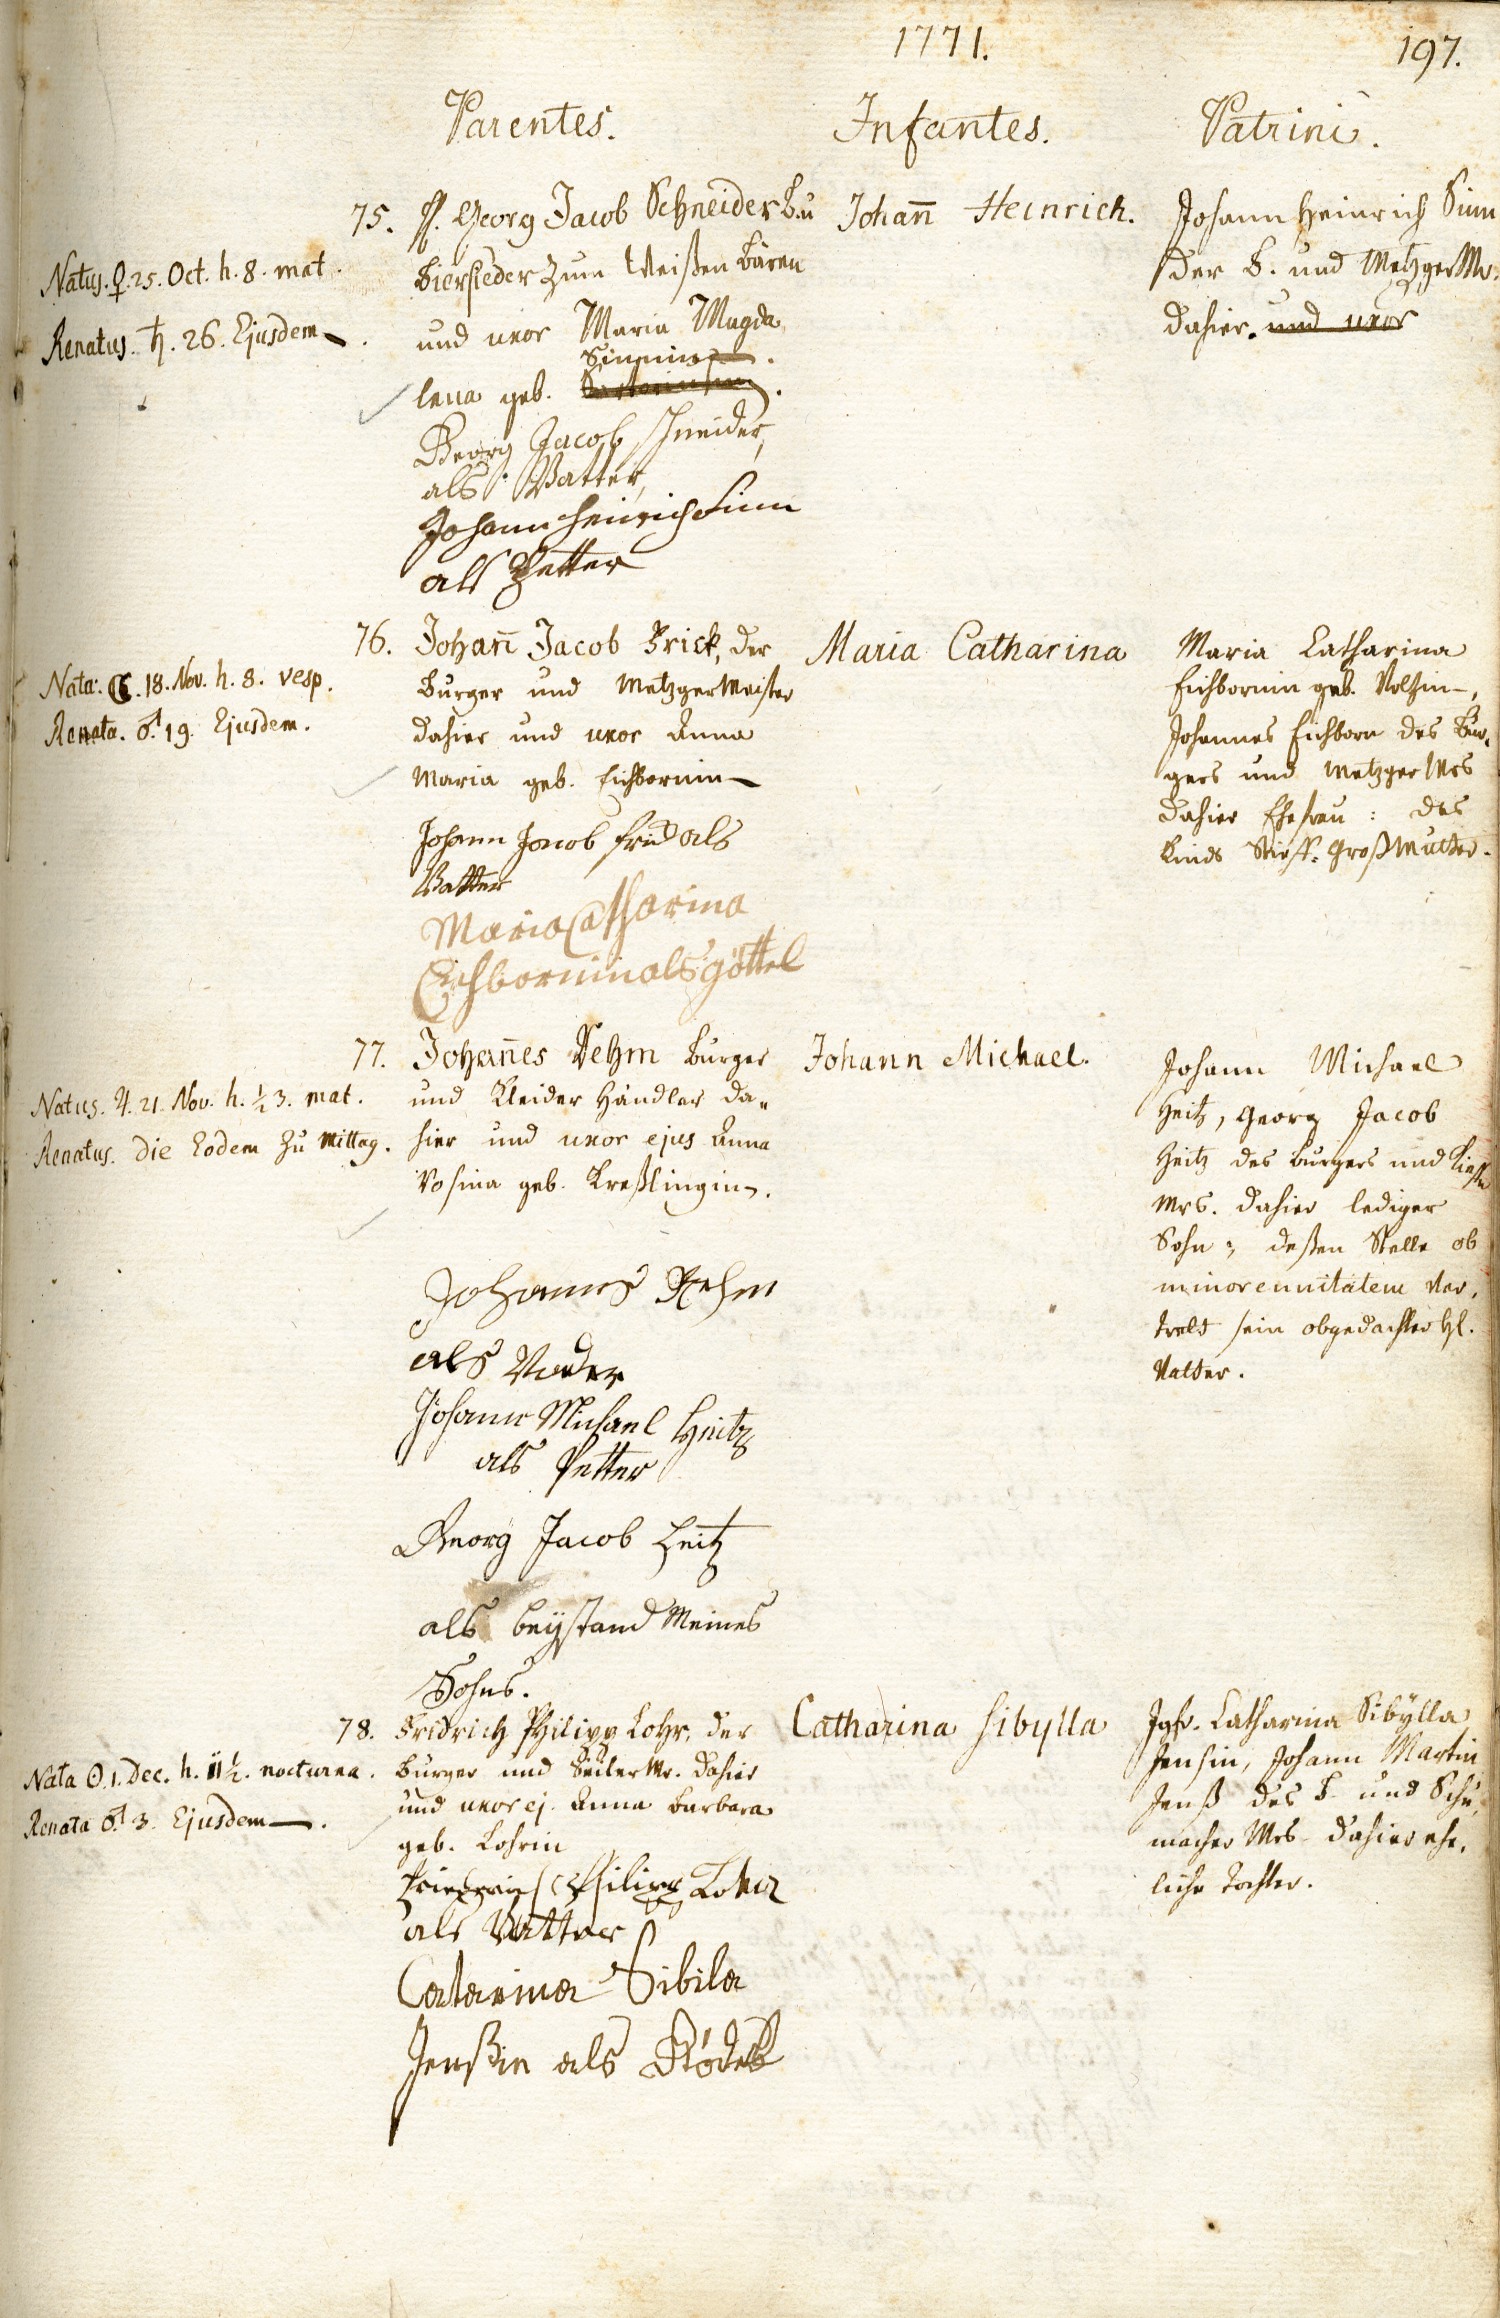 1771.
197.
Parentes.
Infantes.
Patrini.
Natus. ♀. 25. Oct. h. 8. mat.
Renatus. ♄. 26. Ejusdem.
75. H. Georg Jacob Schneider B. u
Biersieder zum Weißen Bären
und uxor Maria Magda
Sinnin.
lena geb.
Georg Jacob schneider,
als Vatter,
Johann Heinrich Sinn
als Petter
Johañ Heinrich.
Johann Heinrich Sinn
der B. und Metzger Mr.
dahier. und uxor
Nata. ☾. 18. Nov. h. 8. vesp.
Renata. ♂. 19. Ejusdem.
76. Johañ Jacob Frick, der
Burger und Metzger Meister
dahier und uxor Anna
Maria geb. Eichbornin
Johann Jacob Frick als
Vatter
Maria Catharina
Eichbornin als göttel
Maria Catharina
Maria Catharina
Eichbornin geb. Voltzin,
Johannes Eichborn des Bur,
gers und Metzger Mrs
dahier Ehefrau: des
Kinds Stieff-Großmutter.
Natus. ♃. 21. Nov. h. ½ 3. mat.
Renatus. die Eodem zu Mittag.
77. Johañes Rehm Burger
und Kleider Händler da„
hier und uxor ejus Anna
Rosina geb. Kreßlingin.
Johannes Rehm
als Vader
Johann Michael Heitz
als Petter
Georg Jacob Heitz
als beystand Meines
Sohns.
Johann Michael.
Johann Michael
Heitz, Georg Jacob
Heitz des Burgers und Kieffer
Mrs. dahier lediger
Sohn; deßen Stelle ob
minorennitatem ver,
tratt sein obgedachter Hl.
Vatter.
Nata ☉. 1. Dec. h. 11½. nocturna.
Renata ♂. 3. Ejusdem.
78. Fridrich Philipp Lohr, der
Burger und Seiler Mr. dahier
und uxor ej. Anna Barbara
geb. Lohrin
Friedrich Philipp Lohr
als Vatter
Catarina Sibila
Jenßin als GöDel
Catharina Sibylla
Jgfr. Catharina Sibÿlla
Jensin, Johann Martin
Jenß des B. und Schu,
macher Mrs dahier ehe,
liche Tochter.